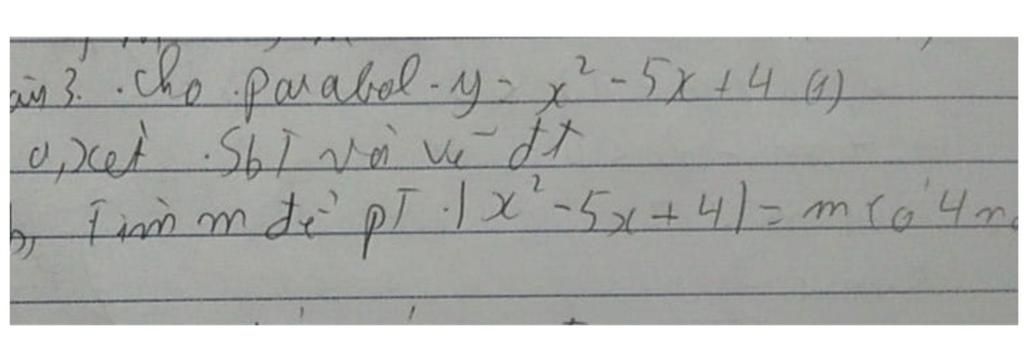 ài 3. Cho parabol y = x² - 5x + 4 (1)
a, xét SbT và vẽ đt
b, Tìm m để pT |x² - 5x + 4| = m có 4 n